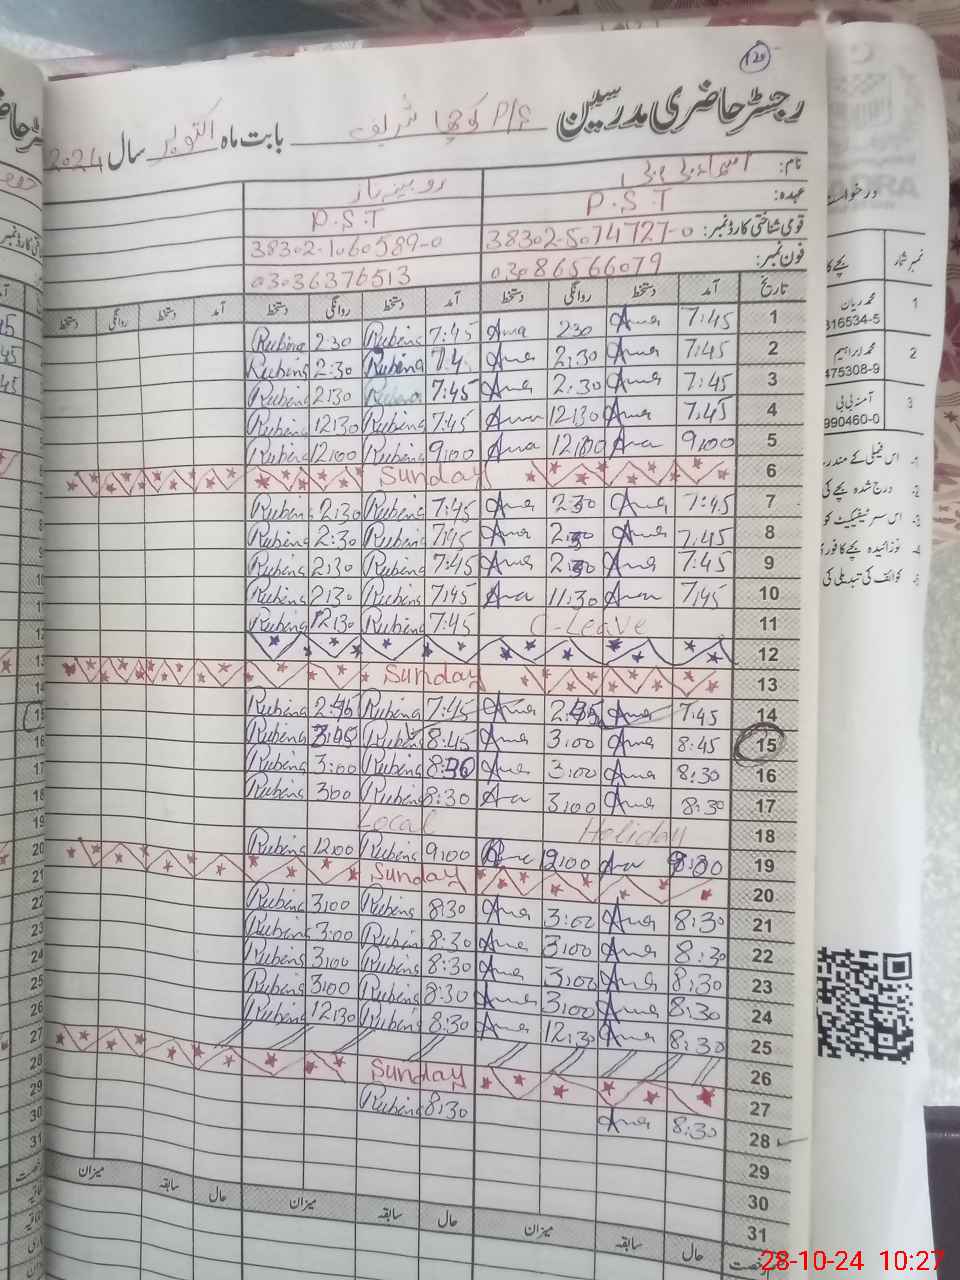 120
رجسٹر حاضری مدرسین P/S کوچھا شریف بابت ماہ اکتوبر سال 2024
نام: اسماء بی بی روبینہ ناز
عہدہ: P.S.T P.S.T
قومی شناختی کارڈ نمبر: 38302-5074727-0 38302-1060589-0
فون نمبر: 03086566079 03036376513
تاریخ آمد دستخط روانگی دستخط آمد دستخط روانگی دستخط آمد دستخط روانگی دستخط
1 7:45 Ama 230 Ama 7:45 Rubina 2:30 Rubina
2 7:45 Ama 2:30 Ama 7:4 Rubina 2:30 Rubina
3 7:45 Ama 2:30 Ama 7:45 Rubina 2:30 Rubina
4 7:45 Ama 12:30 Ama 7:45 Rubina 12:30 Rubina
5 9:00 Ama 12:00 Ama 9:00 Rubina 12:00 Rubina
6 Sunday
7 7:45 Ama 2:30 Ama 7:45 Rubina 2:30 Rubina
8 7:45 Ama 2:30 Ama 7:45 Rubina 2:30 Rubina
9 7:45 Ama 2:30 Ama 7:45 Rubina 2:30 Rubina
10 7:45 Ama 11:30 Ama 7:45 Rubina 2:30 Rubina
11 C-Leave 7:45 Rubina 12:30 Rubina
12
13 Sunday
14 7:45 Ama 2:45 Ama 7:45 Rubina 2:45 Rubina
15 8:45 Ama 3:00 Ama 8:45 Rubina 3:45 Rubina
16 8:30 Ama 3:00 Ama 8:30 Rubina 3:00 Rubina
17 8:30 Ama 3:00 Ama 8:30 Rubina 300 Rubina
18 Local Holiday
19 Ama 12:00 Ama 9:00 Rubina 12:00 Rubina
20 Sunday
21 8:30 Ama 3:00 Ama 8:30 Rubina 3:00 Rubina
22 8:30 Ama 3:00 Ama 8:30 Rubina 3:00 Rubina
23 8:30 Ama 3:00 Ama 8:30 Rubina 3:00 Rubina
24 8:30 Ama 3:00 Ama 8:30 Rubina 3:00 Rubina
25 8:30 Ama 12:30 Ama 8:30 Rubina 12:30 Rubina
26
27 Sunday
28 8:30 Ama 8:30 Rubina
29
30
31
حال سابقہ میزان حال سابقہ میزان حال سابقہ میزان
درخواست
نمبر شمار بچے کا
1 محمد ریان
316534-5
2 محمد ابراہیم
475308-9
3 آمنہ بی بی
990460-0
1- اس فیملی کے مندر
2- درج شدہ بچے کی
3- اس سرٹیفیکیٹ کو
4- نوزائیدہ بچے کا فوری
5- کوائف کی تبدیلی کی
28-10-24 10:27